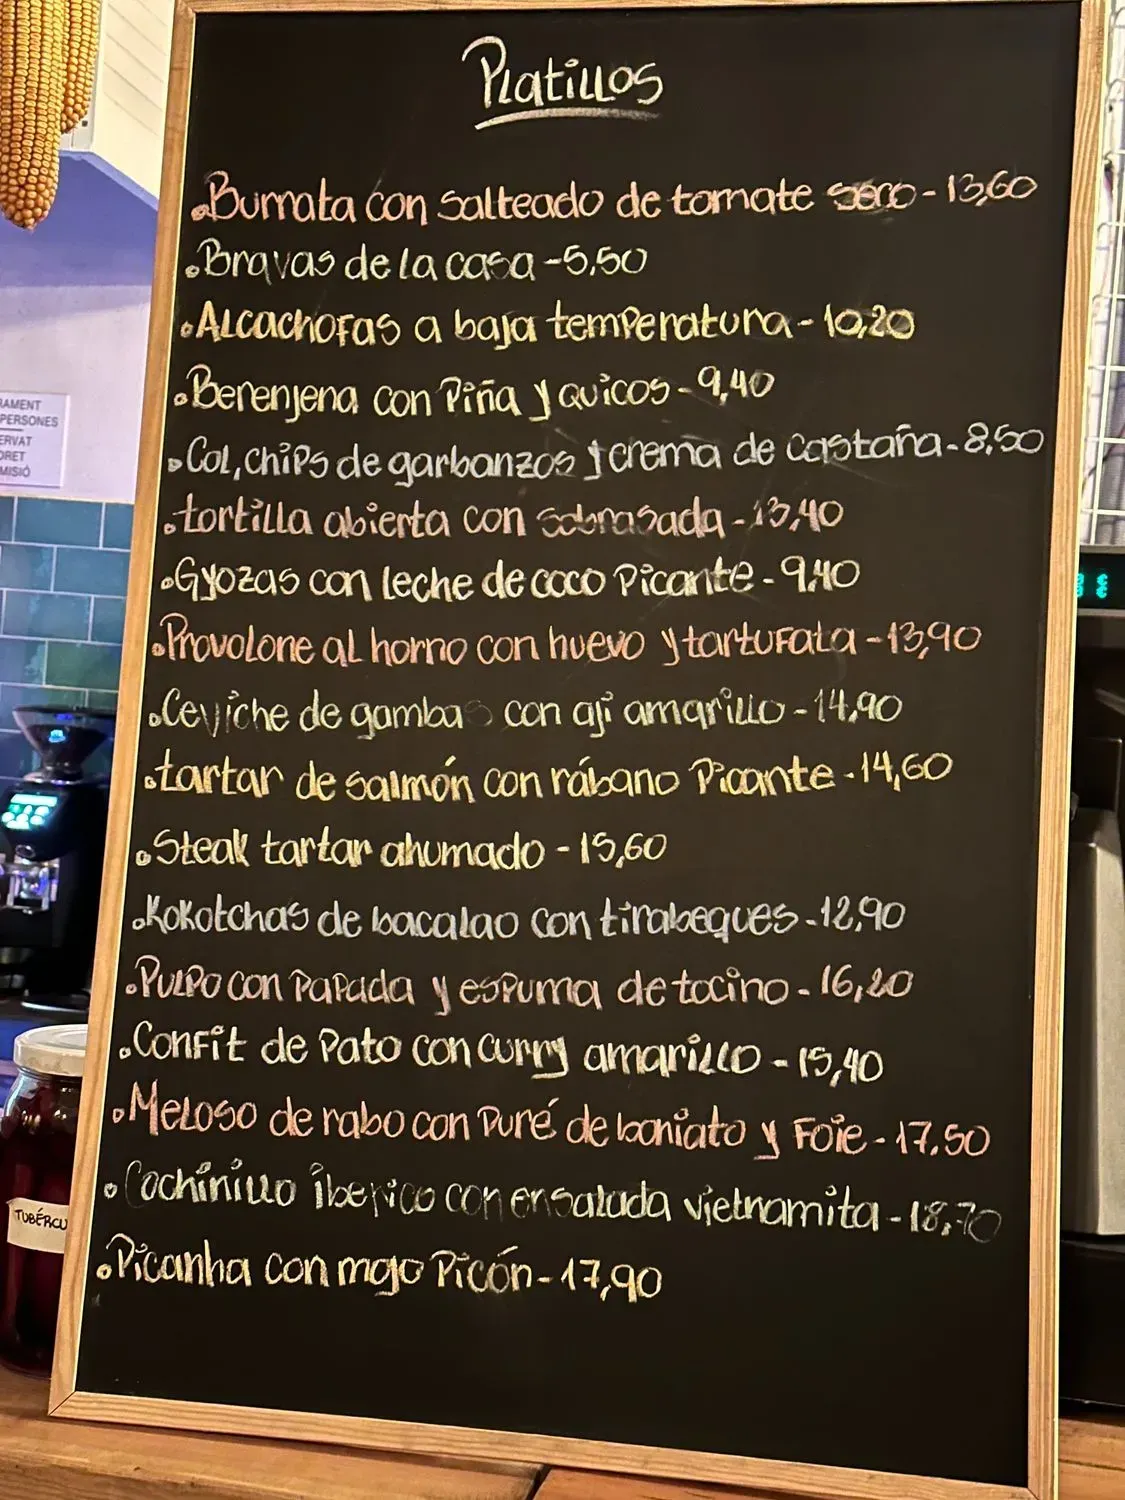 Platillos
Burrata con salteado de tomate seco - 13,60
Bravas de la casa - 5,50
Alcachofas a baja temperatura - 10,20
Berenjena con Piña y quicos - 9,40
Col, chips de garbanzos y crema de castaña - 8,50
tortilla abierta con sobrasada - 13,40
Gyozas con leche de coco Picante - 9,40
Provolone al horno con huevo y tartufata - 13,90
Ceviche de gambas con ají amarillo - 14,90
tartar de salmón con rábano Picante - 14,60
Steak tartar ahumado - 15,60
Kokotchas de bacalao con tirabeques - 12,90
Pulpo con Papada y espuma de tocino - 16,20
Confit de Pato con curry amarillo - 15,40
Meloso de rabo con Puré de boniato y Foie - 17,50
Cochinillo iberico con ensalada vietnamita - 18,70
Picanha con mojo Picón - 17,90
RAMENT
PERSONES
ERVAT
DRET
MISIÓ
TUBÉRCU